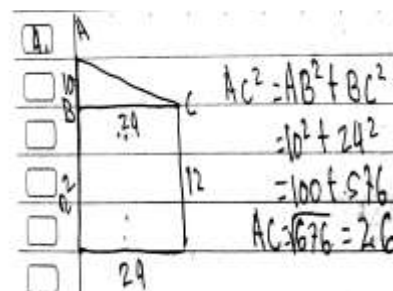 A.
A
10
B
C
24
12
24
AC² = AB² + BC²
= 10² + 24²
= 100 + 576
AC = √676 = 26